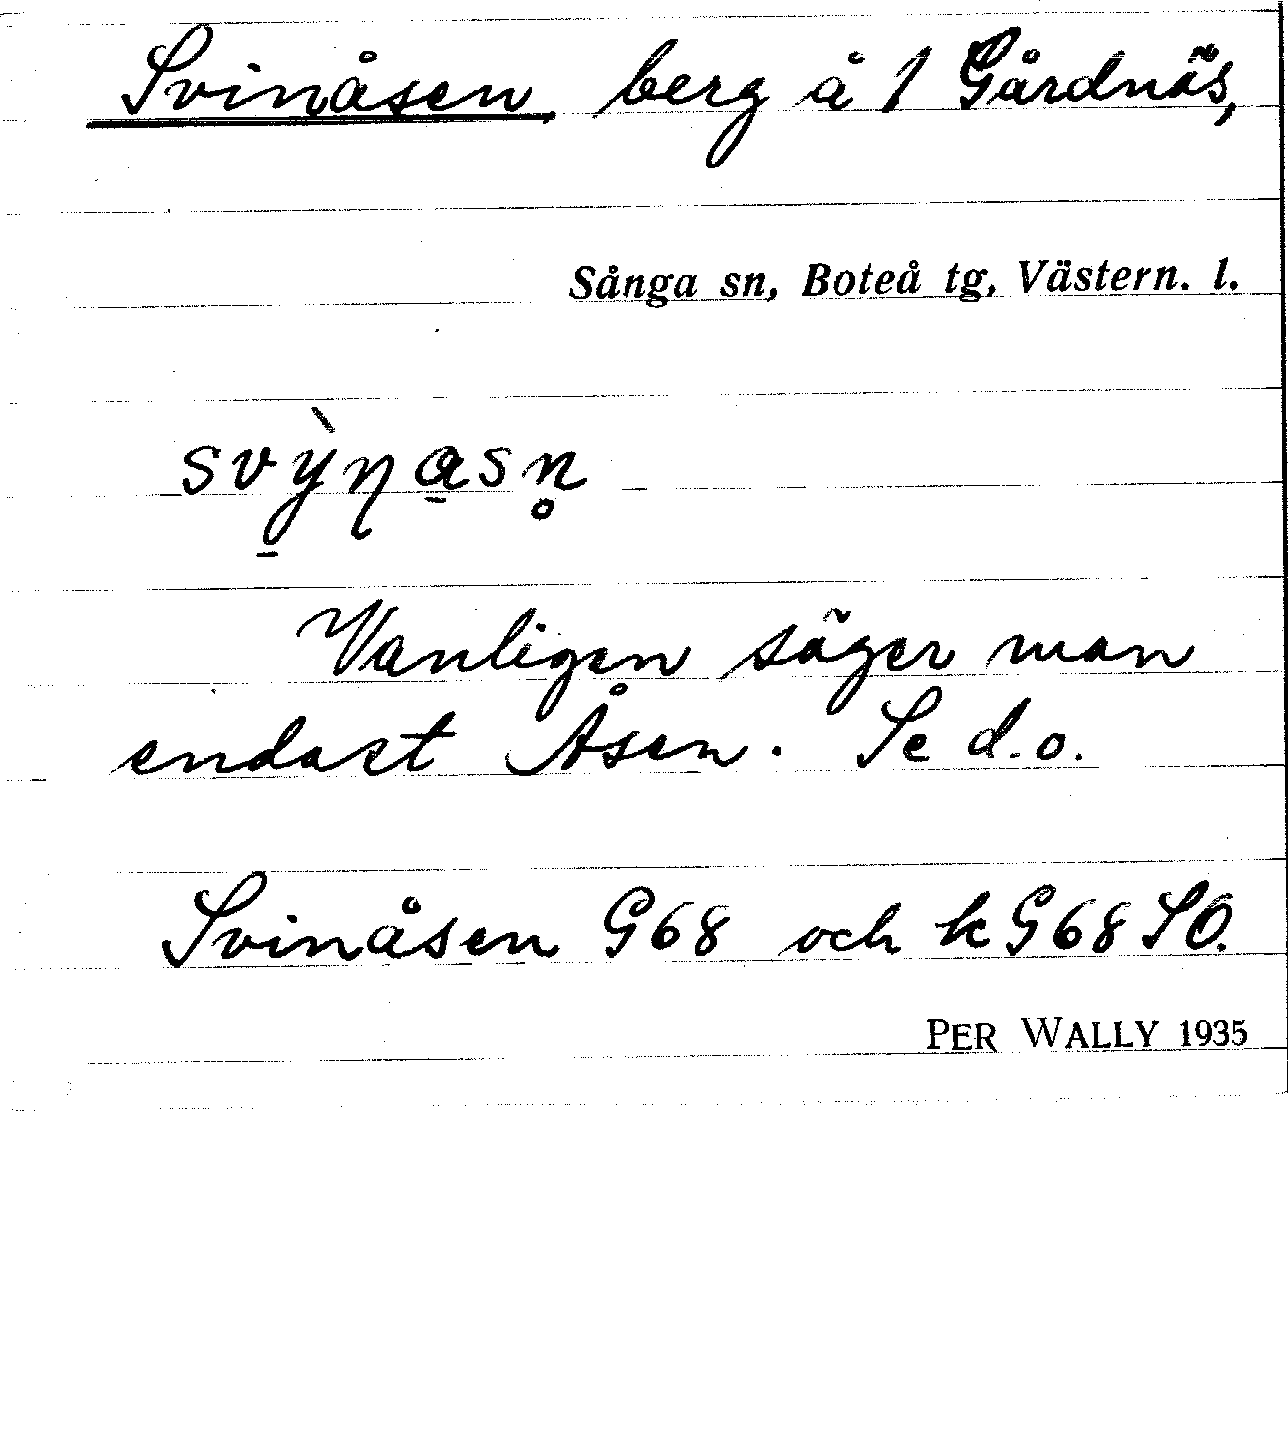 Svinåsen, berg å 1 Gårdnäs,
Sånga sn, Boteå tg, Västern. l.
svỳ̠ŋa̠sn̥
Vanligen säger man
endast Åsen. Se d.o.
Svinåsen G68 och k G68 SO.
PER WALLY 1935